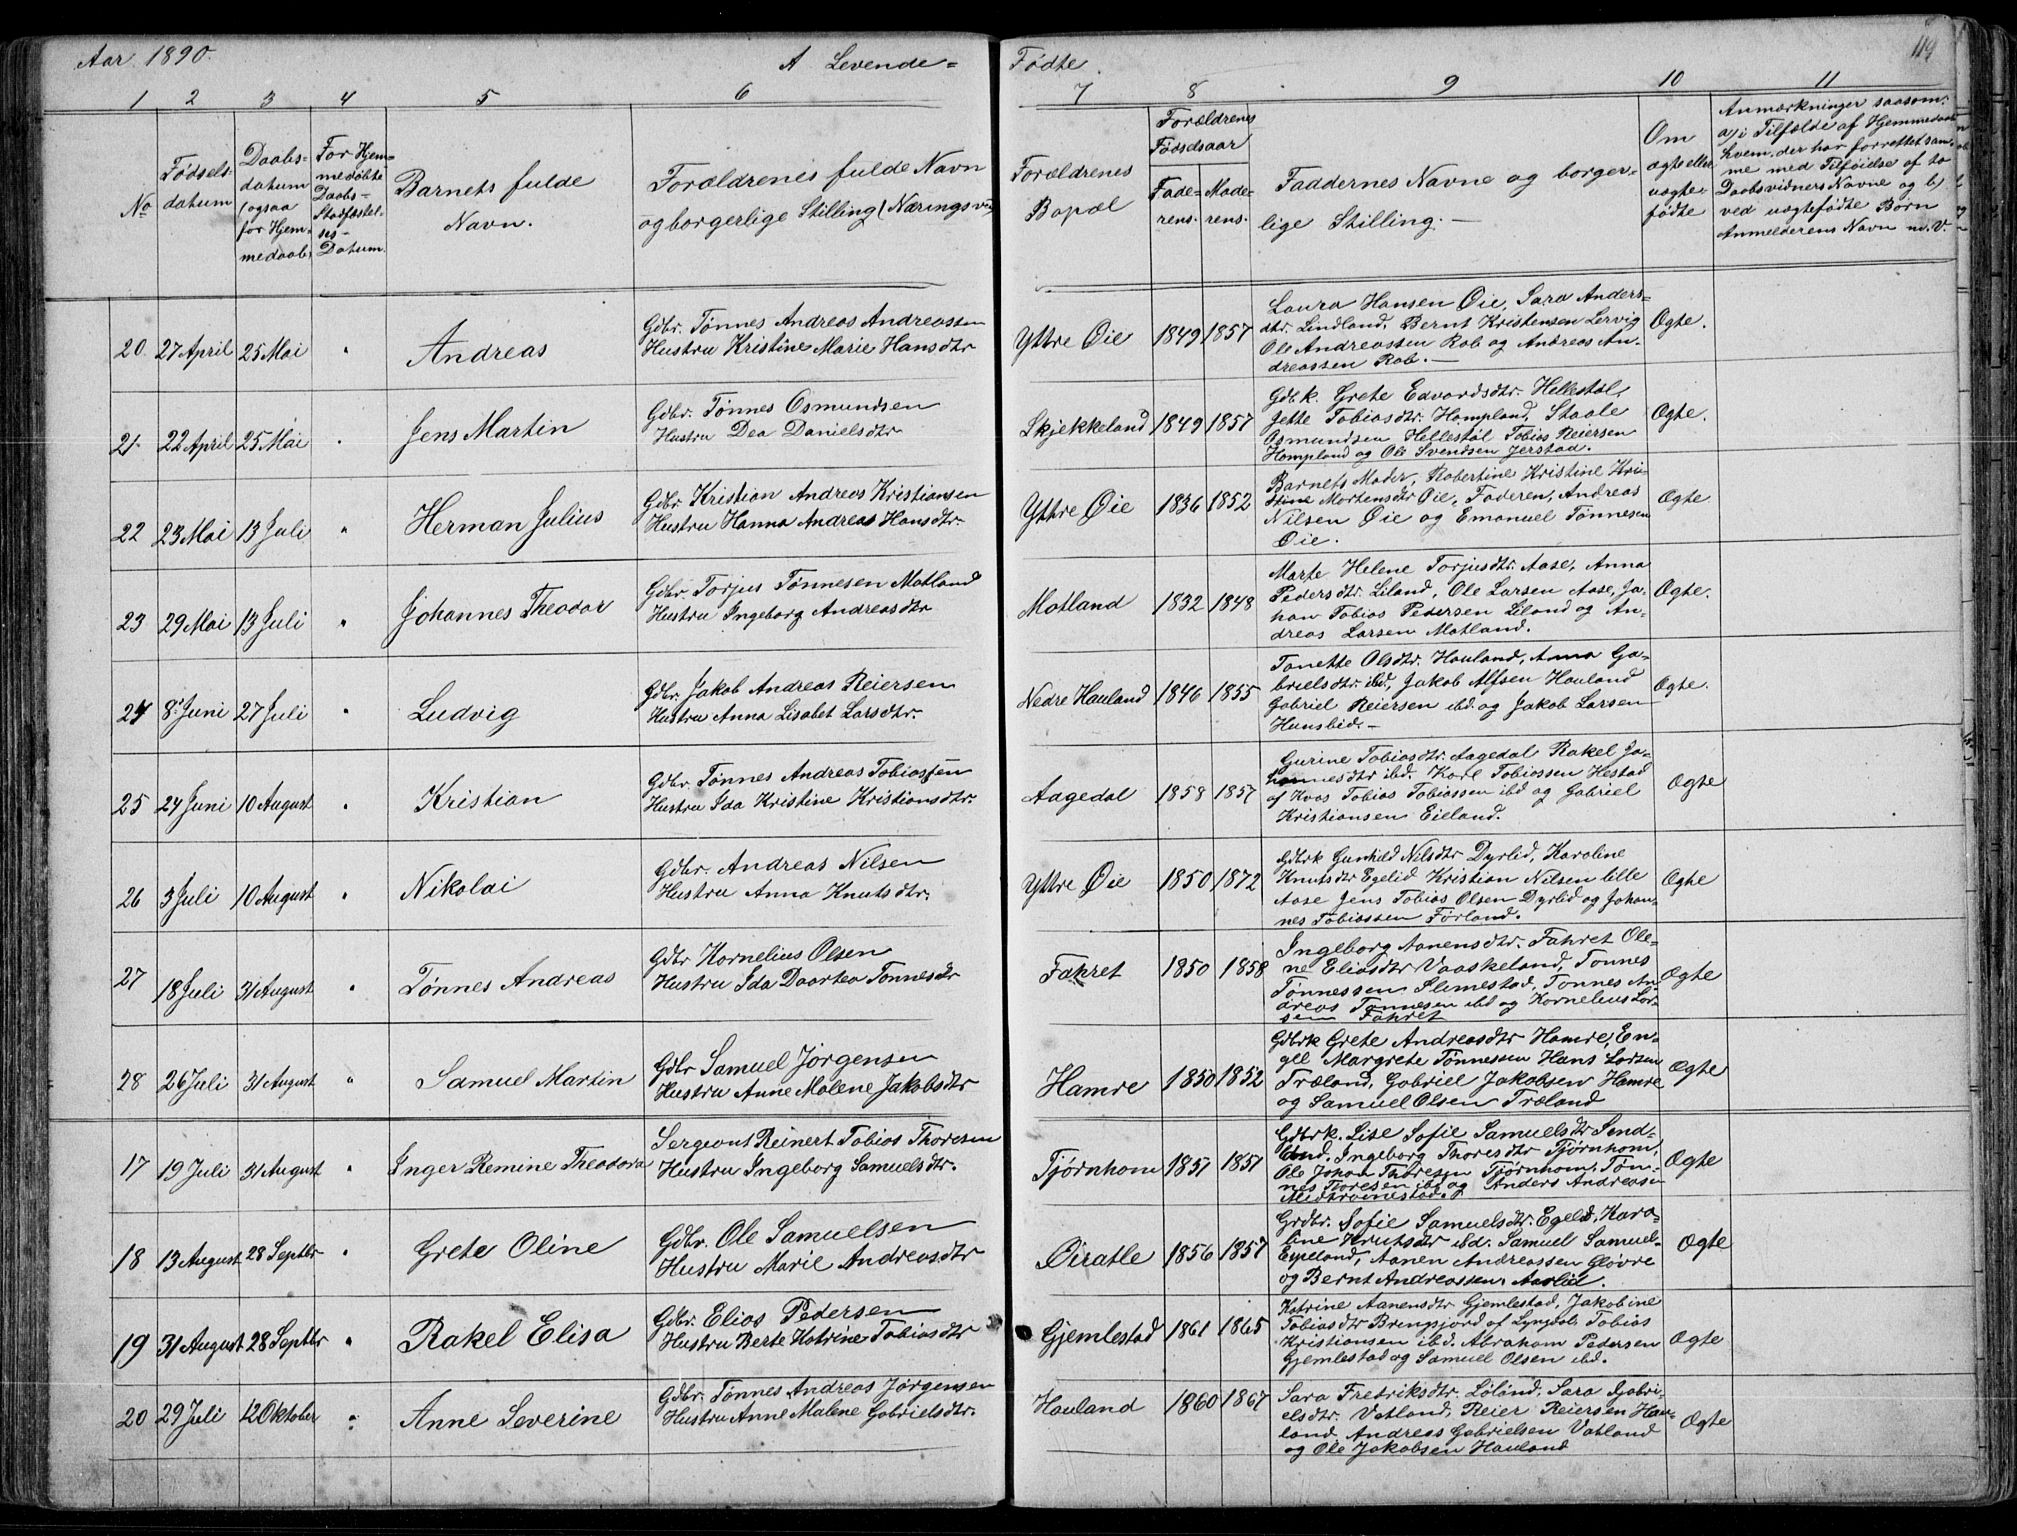 Aar 1890.
A Levende=
Fødte.
119
1 2 3 4 5 6 7 8 9 10 11
No
Fødsels-
datum
Daabs-
datum
(ogsaa
for Hjem-
medaab)
For Hjem-
medøbte
Daabs-
Stadfæstel-
ses-
Datum.
Barnets fulde
Navn.
Forældrenes fulde Navn
og borgerlige Stilling (Næringsvei)
Forældrenes
Bopæl
Forældrenes
Fødselsaar
Fade-
rens.
Mode-
rens.
Faddernes Navne og borger-
lige Stilling.—
Om
ægte eller
uægte
fødte
Anmærkninger saasom:
a) i Tilfælde af Hjemmedaab
hvem, der har forrettet sam-
me med Tilføidse af to
Daabsvidners Navne og b)
ved uægtefødte Børn
Anmelderens Navn m. V.
20. 27 April 25 Mai " Andreas
Gdbr. Tønnes Andreas Andreassen
Hustru Kristine Marie Hansdtr
Yttre Øie 1849 1857
Laura Hansen Øie, Sara Anders-
dtr. Lindland, Bernt Kristensen Lervig
Ole Andreassen Rob og Andreas An-
dreassen Rob.—
Ægte.
21. 22 April 25 Mai " Jens Martin
Gdbr. Tønnes Osmundsen
Hustru Dea Danielsdtr
Skjekkeland 1849 1857
Gdbk. Grete Edvardsdtr. Hellestøl,
Jette Tobiasdtr. Hompland, Staale
Osmundsen Hellestøl Tobias Reiersen
Hompland og Ole Svendsen Jerstad.
Ægte.
22 23 Mai 13 Juli " Herman Julius
Gdbr Kristian Andreas Kristiansen
Hustru Hanna Andrea Hansdtr.
Yttre Øie 1836 1852
Barnets Moder, Robertine Kristine Kri-
stine Mortensdtr Øie, Faderen, Andreas
Nilsen Øie og Emanuel Tønnesen
Øie.
Ægte
23 29 Mai 13 Juli " Johannes Theodor
Gdbr. Torjus Tønnesen Motland
Hustru Ingeborg Andreasdtr
Motland 1832 1848
Marte Helene Torjusdtr. Aase, Anna
Pedersdtr. Liland, Ole Larsen Aase, Jo-
han Tobias Pedersen Liland og An-
dreas Larsen Motland.
Ægte.
24 8. Juni 27 Juli " Ludvig
Gdbr. Jakob Andreas Reiersen
Hustru Anna Lisabet Larsdtr.
Nedre Hauland 1846 1855
Tonette Olsdtr. Hauland, Anna Ga-
brielsdtr. ibd, Jakob Alfsen Hauland
Gabriel Reiersen ibd. og Jakob Larsen
Hunsbid.—
Ægte.
25 24 Juni 10 August " Kristian
Gdbr Tønnes Andreas Tobiassen
Hustru Ida Kristine Kristiansdtr.
Aagedal 1858 1857
Gurine Tobiasdtr. Aagedal Rakel Jo-
hannesdtr ibd. Karl Tobiassen Hestad
af Kvas Tobias Tobiassen ibd og Gabriel
Kristiansen Eieland.
Ægte
26 3 Juli 10 August " Nikolai
Gdbr. Andreas Nilsen
Hustru Anna Knutsdtr.
Yttre Øie 1850 1872
Gdbrk Gunhild Nilsdtr Dyrlid, Karoline
Knutsdtr Egelid Kristian Nilsen lille
Aase Jens Tobias Olsen Dyrlid og Johan-
nes Tobiassen Førland.
Ægte
27 18 Juli 31 August " Tønnes Andreas
Gdbr Kornelius Olsen
Hustru Ida Daartea Tønnesdtr
Fahret 1850 1858
Ingeborg Aanensdtr. Fahret Ole-
ne Eliasdtr Vaaskeland, Tønnes
Tønnessen Slimestad, Tønnes An-
dreas Tønnesen ibd og Kornelius Lar-
sen Fahret
Ægte
28 26 Juli 31 August " Samuel Martin
Gdbr Samuel Jørgensen
Hustru Anne Malene Jakobsdtr
Hamre 1850 1852
Gdbrk Grete Andreasdtr Hamre, En-
gel Margrete Tønnessen Hans Larsen
Træland, Gabriel Jakobsen Hamre
og Samuel Olsen Træland
Ægte
17 19 Juli 31 August " Inger Remine Theodora
Sergeant Reinert Tobias Thoresen
Hustru Ingeborg Samuelsdtr.
Tjørnhom 1851 1851
Gdbrk. Lise Sofie Samuelsdtr Sand-
land, Ingeborg Thoresdtr Tjørnhom,
Ole Johan Thoresen Tjørnhom, Tøn-
nes Toresen ibd og Anders Andreasen
Ægte
18 13 August 28 Septbr " Grete Oline
Gdbr. Ole Samuelsen
Hustru Marie Andreasdtr
Øiratle 1856 1857
Grdbr. Sofie Samuelsdtr. Egeld, Karo-
line Knutsdtr ibd. Samuel Samuel-
Eyeland, Aanen Andreassen Gløvre
og Bernt Andreassen Aarlid.
Ægte
19 31 August 28 Septbr " Rakel Elisa
Gdbr. Elias Pedersen
Hustru Berte Katrine Tobiasdtr
Gjemlestad 1861 1865
Katrine Aanensdtr Gjemlestad, Jakobine
Tobiasdtr Brenjord af Lyngdal Tobias
Kristiansen ibd. Abraham Pedersen
Gjemlestad og Samuel Olsen ibd.
Ægte
20 29 Juli 12 Oktober " Anne Severine
Gdbr. Tønnes Andreas Jørgensen
Hustru Anne Malene Gabrielsdtr.
Hauland 1860 1867
Sara Fredriksdtr. Løland, Sara Gabri-
elsdtr. Vatland, Reier Reiersen Hau-
land Andreas Gabrielsen Vatland
og Ole Jakobsen Hauland
Ægte